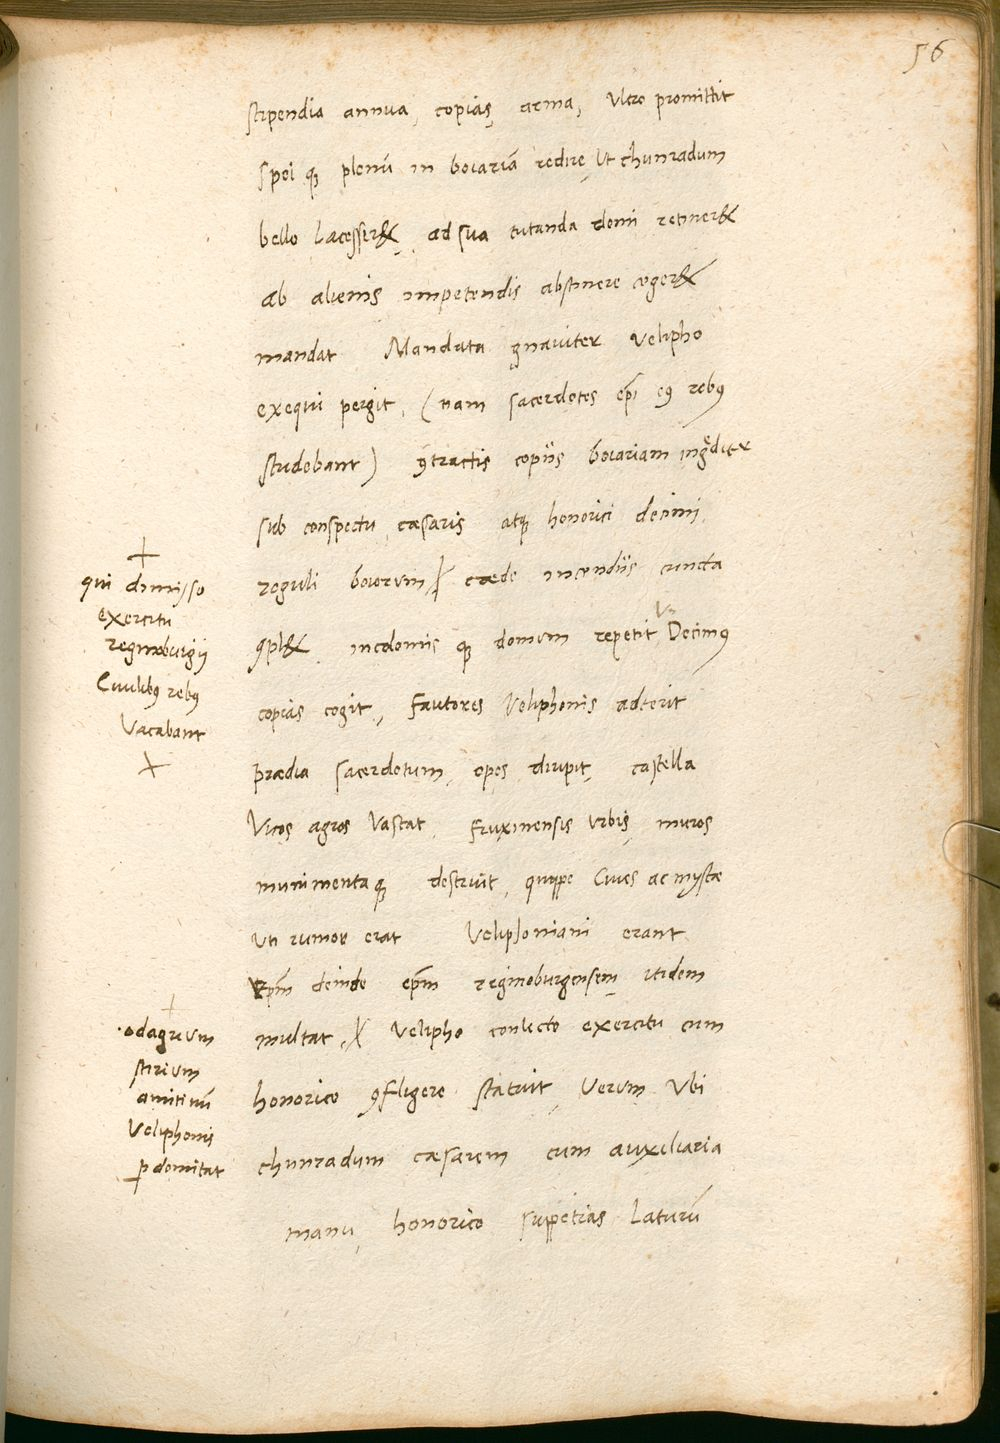 56
stipendia annua, copias, arma, Vltro promittit
spei q; plenũ in boiariã redire, Vt chunradum
bello lacesser&, ad sua tutanda domi retiner&
ab alienis impetendis abstinere coger&
mandat Mandata gnaviter velipho
exequi pergit, (nam sacerdotes ep̃i eꝰ rebꝰ
studebant) ꝯtractis copiis boiariam ingrediter
sub conspectu cæsaris atq; honorici decimi,
reguli boiorum cæde incendiis cuncta
ꝯpl& incolomis q; domum repetit, Decimꝰ
copias cogit, fautores Veliphonis adterit
prædia sacerdotum, opes diripit, castella
Vicos agros Vastat, fruxinensis Vrbis, muros
munimentaq; destruit, quippe Cives ac mystæ
Vti rumor erat Veliphoniani erant
Ep̃m deinde ep̃m reginoburgensem itidem
multat, Velipho conlecto exercitu cum
honorico ꝯfligere statuit, Verum Vbi
chunradum cæsarem cum auxiliaria
manu, honorico suppetias Laturũ
+
qui dimisso
exercitu
reginoburgij
Civilibꝰ rebꝰ
Vacabant
+
+
odagrium
stirium
amitinũ
Veliphonis
ꝑdomitat